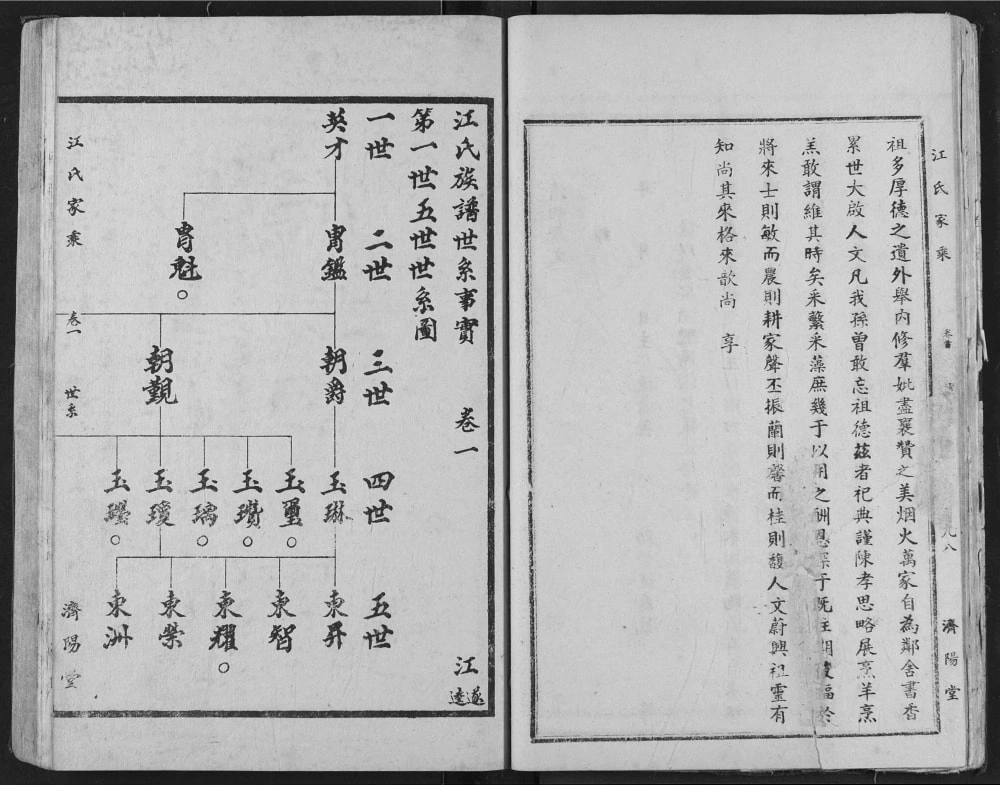 江氏家乘
卷首
九八
濟陽堂
祖多厚德之遺外舉內修羣姚盡襄贊之美烟火萬家自為鄰舍書香
累世大啟人文凡我孫曾敢忘祖德茲者祀典謹陳孝思略展烹羊烹
羔敢謂維其時矣采蘩采藻庶幾于以用之酬恩深于既往期後福於
將來士則敏而農則耕家聲丕振蘭則馨而桂則馥人文蔚興祖靈有
知尚其來格來歆尚 享
江氏族譜世系事實 卷一 江
遂
逵
第一世五世世系圖
一世 二世 三世 四世 五世
英才 胄鑑 朝爵 玉琳 東昇
玉璽 東智
玉瓚 東耀
胄魁
玉璃
朝覲 玉瓊 東榮
玉 東洲
江氏家乘 卷一 世系 濟陽堂